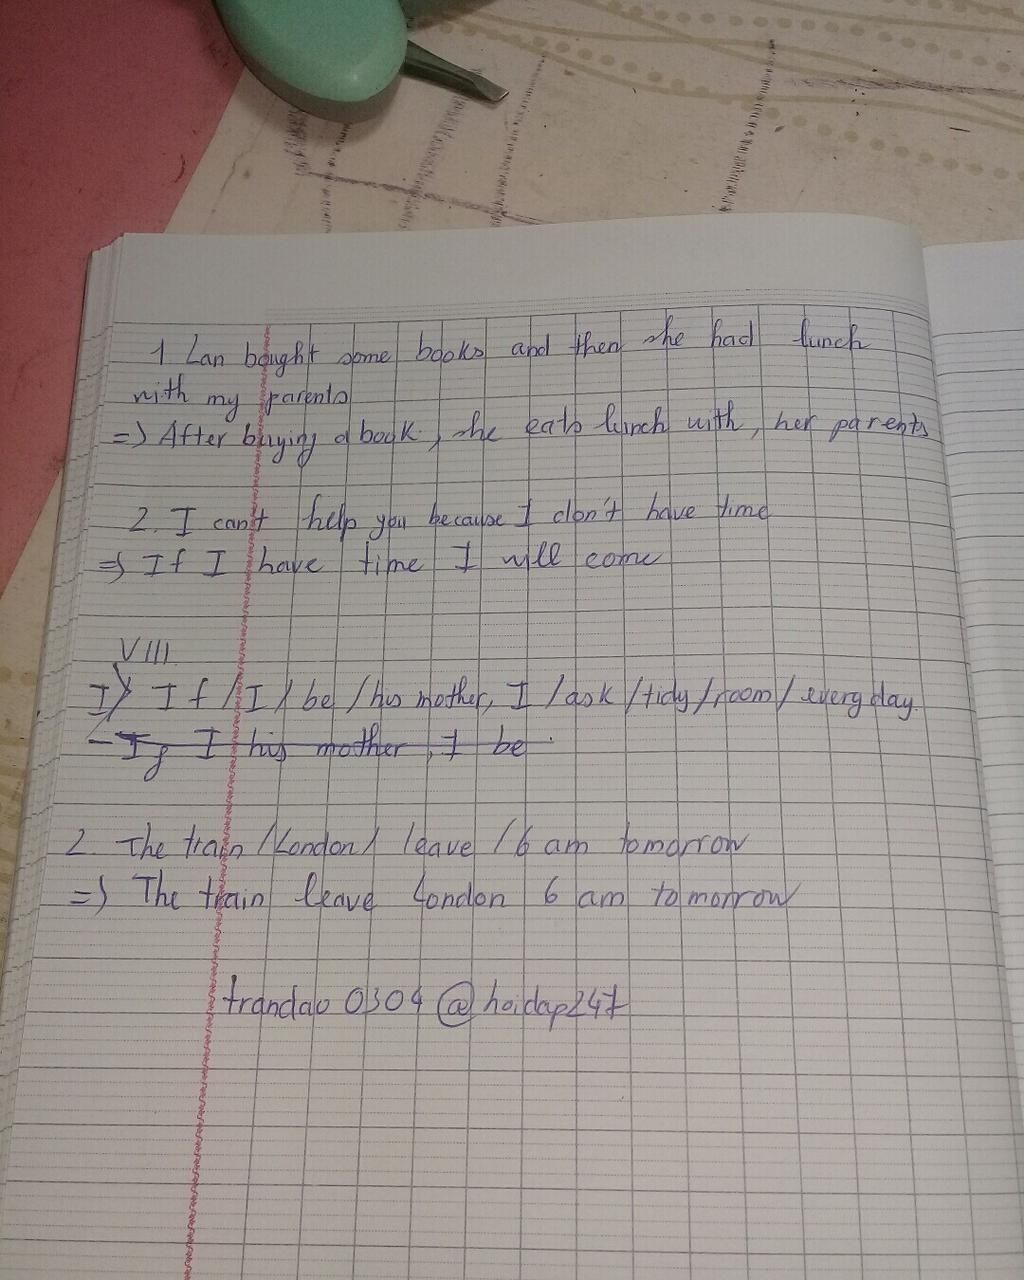 1. Lan bought some books and then she had lunch
with my parents
=> After buying a book, she eats lunch with, her parents
2. I can't help you because I don't have time
=> If I have time I will come
VIII
I) If / I / be / his mother, I / ask / tidy / room / every day.
- If I his mother, I be
2. The train / London / leave / 6 am tomorrow
=> The train leave London 6 am tomorrow
trandao 0304 @hoidap247